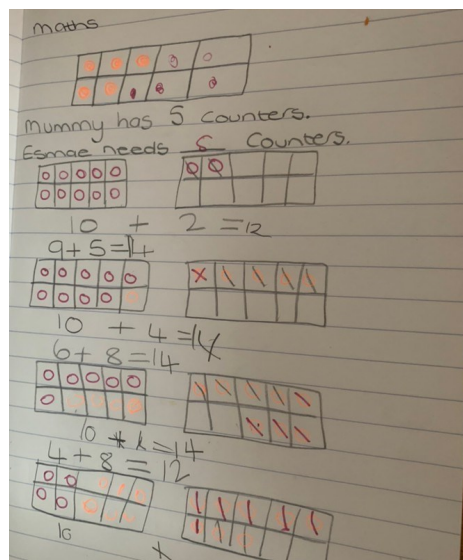 maths
Mummy has 5 Counters.
Esmae needs 5 Counters.
10 + 2 = 12
9 + 5 = 14
10 + 4 = 14
6 + 8 = 14
10 + = 14
4 + 8 = 12
10 +